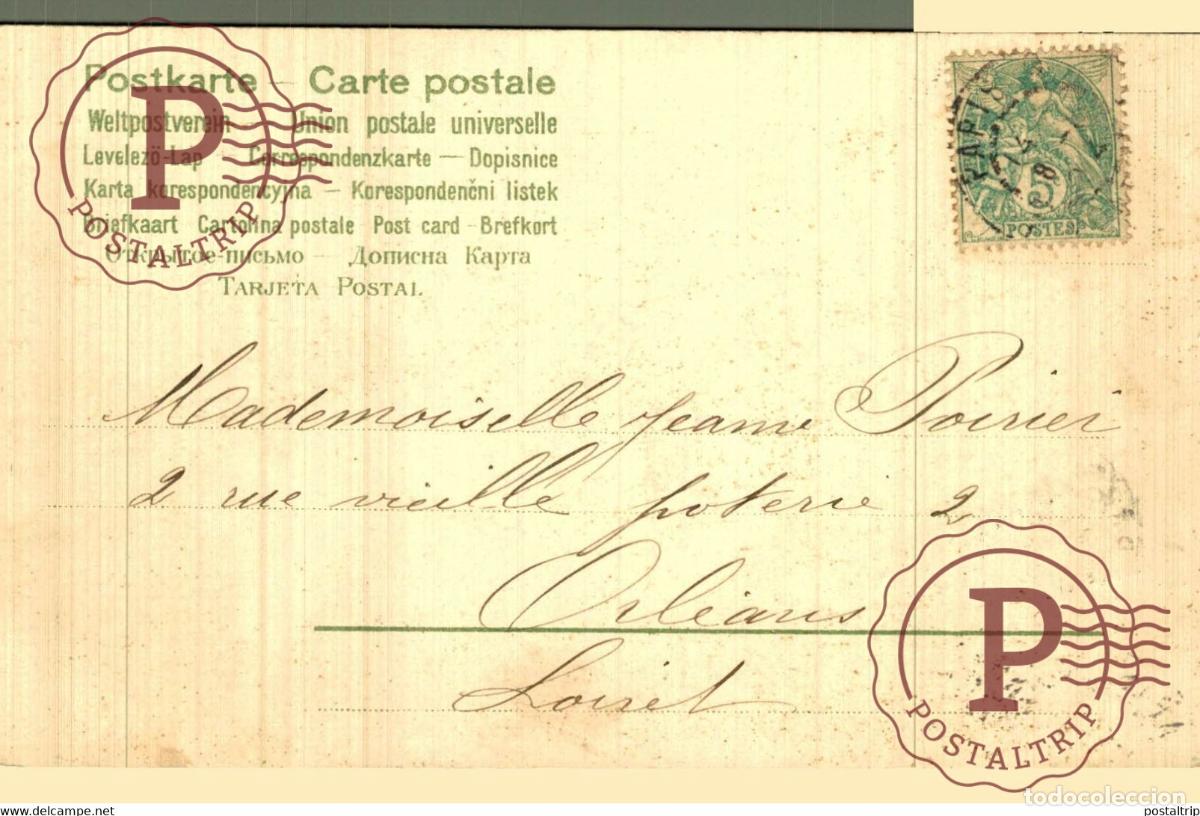 Postkarte – Carte postale
Weltpostverein – Union postale universelle
Levelező-Lap – Correspondenzkarte – Dopisnice
Karta korespondencyjna – Korespondenčni listek
Briefkaart Cartolina postale Post card - Brefkort
Открытое-письмо – Дописна Карта
TARJETA POSTAL
PARIS
5
POSTES
Mademoiselle Jeanne Poirier
2 rue vieille poterie 2
Orléans
Loiret
P
POSTALTRIP
P
POSTALTRIP
todocoleccion
www.delcampe.net
postaltrip